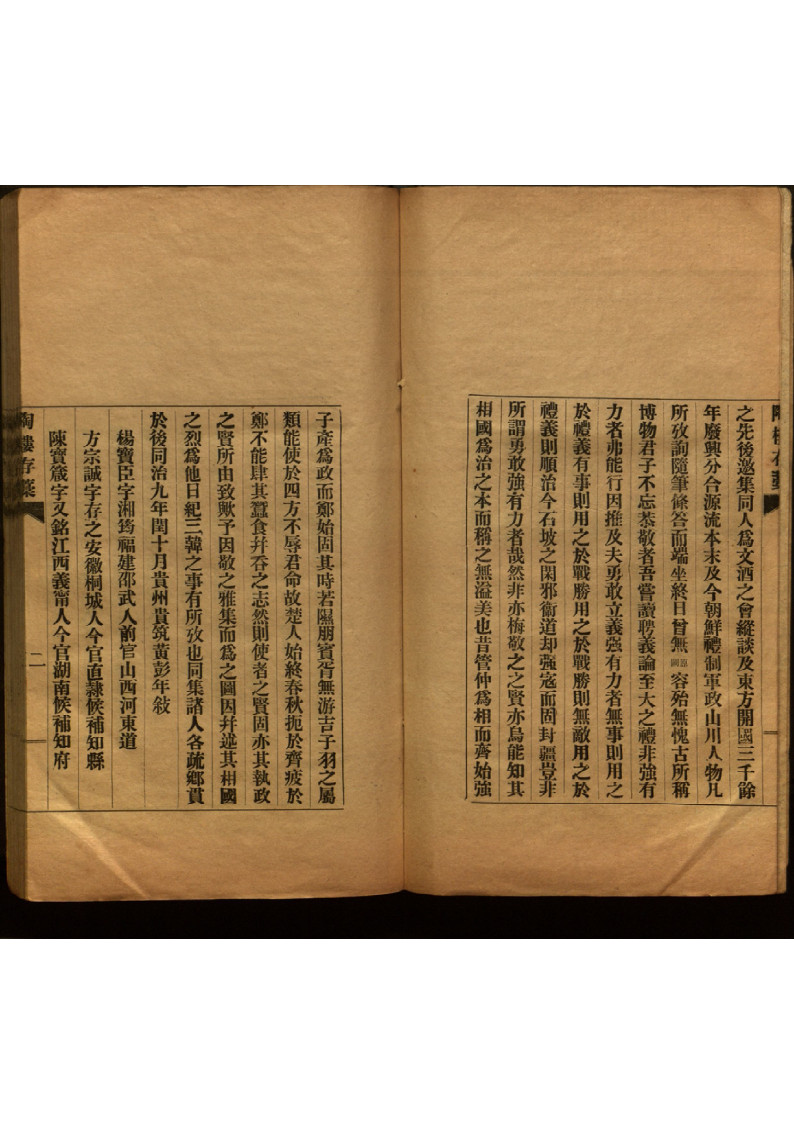 陶樓存藁
之先後邀集同人爲文酒之會縱談及東方開國三千餘
年廢興分合源流本末及今朝鮮禮制軍政山川人物凡
所攷詢隨筆條答而端坐終日曾無 容殆無愧古所稱
博物君子不忘恭敬者吾嘗讀聘義論至大之禮非強有
力者弗能行因推及夫勇敢立義强有力者無事則用之
於禮義有事則用之於戰勝用之於戰勝則無敵用之於
禮義則順治今石坡之閑邪衞道却强寇而固封疆豈非
所謂勇敢強有力者哉然非亦梅敬之之賢亦烏能知其
相國爲治之本而稱之無溢美也昔管仲爲相而齊始強
子產爲政而鄭始固其時若隰朋賓胥無游吉子羽之屬
類能使於四方不辱君命故楚人始終春秋扼於齊疲於
鄭不能肆其蠶食幷吞之志然則使者之賢固亦其執政
之賢所由致歟予因敬之雅集而爲之圖因幷述其相國
之烈爲他日紀三韓之事有所攷也同集諸人各疏鄉貫
於後同治九年閏十月貴州貴筑黃彭年敍
楊寶臣字湘筠福建邵武人前官山西河東道
方宗誠字存之安徽桐城人今官直隸候補知縣
陳寶箴字又銘江西義甯人今官湖南候補知府
陶樓存藁
二